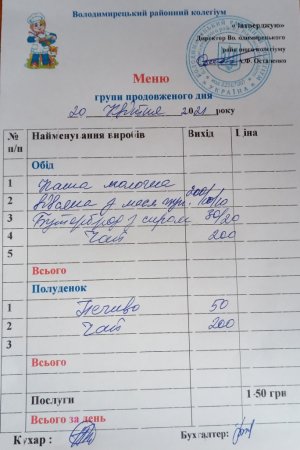 Володимирецький районний колегіум
«Затверджую»
Директор Володимирецького
районного колегіуму
А.Ф. Остапенко
УКРАЇНА
Меню
групи продовженого дня
20 квітня 2021 року
№ п/п Найменування виробів Вихід Ціна
Обід
1 Каша молочна
2 200/10/10
3 Бутерброд з сиром 30/20
4 Чай 200
5
Всього
Полуденок
1 Печиво 50
2 Чай 200
3
Всього
Послуги 1-50 грн
Всього за день
Кухар : Бухгалтер: